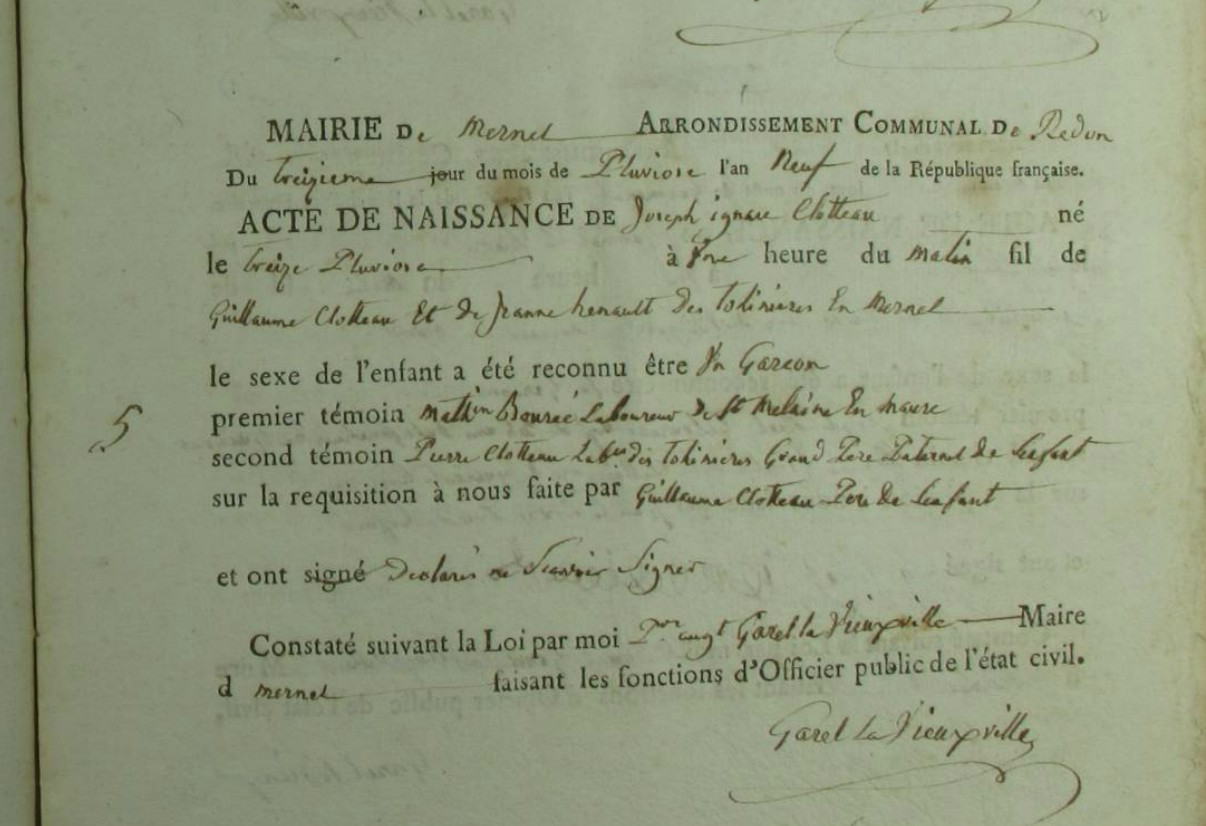 MAIRIE De Mernel ARRONDISSEMENT COMMUNAL De Redon
Du treizieme jour du mois de Pluviose l'an Neuf de la République française.
ACTE DE NAISSANCE DE Joseph ignace Clotteau né
le treize Pluviose à Vne heure du matin fil de
Guillaume Clotteau Et de Jeanne henault des tolinieres En Mernel
le sexe de l'enfant a été reconnu être Vn Garcon
premier témoin Math.in Bourée Laboureur de St Melaine En maure
5
second témoin Pierre Clotteau Lab.eur des tolinieres Grand Pere Paternel de Lenfant
sur la requisition à nous faite par Guillaume Clotteau Pere de Lenfant
et ont signé declarés ne Scavoir Signer
Constaté suivant la Loi par moi Garel la Vieuxville Maire
d mernel faisant les fonctions d'Officier public de l'état civil.
Garel La Vieuxville